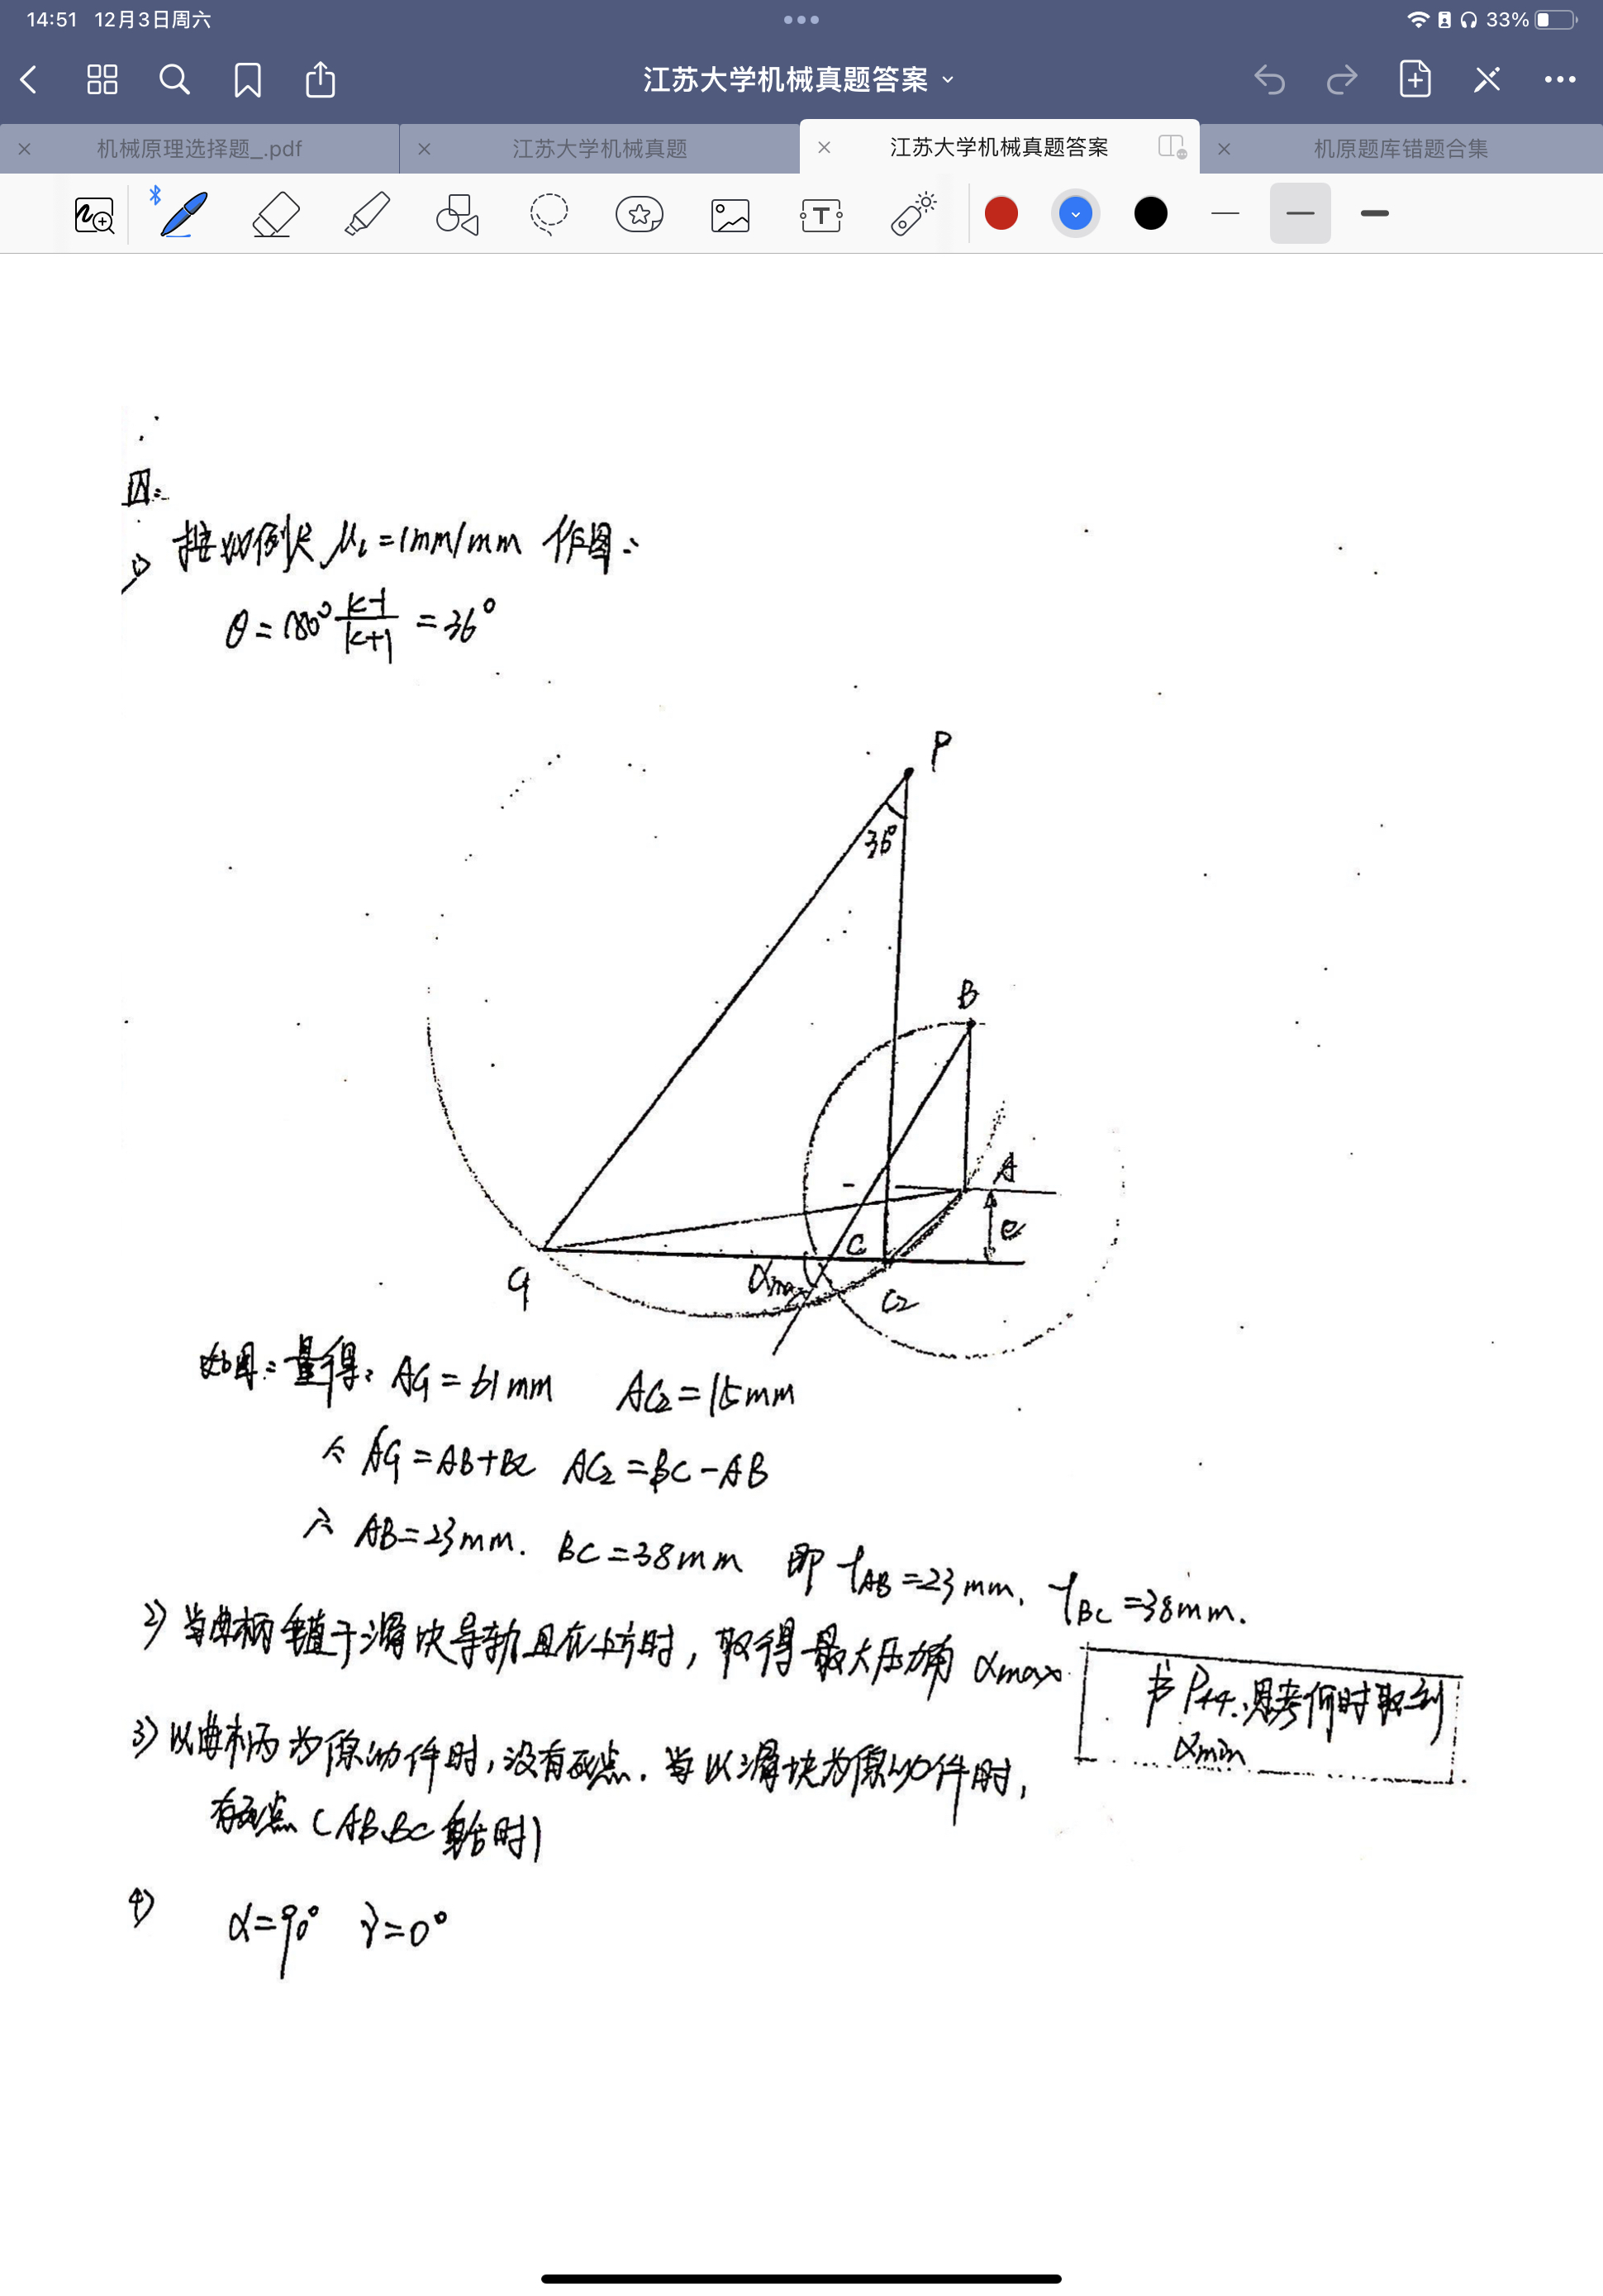 14:51 12月3日周六
33%
江苏大学机械真题答案
机械原理选择题_.pdf
江苏大学机械真题
江苏大学机械真题答案
机原题库错题合集
四:
1) 按比例尺 μL=1mm/mm 作图:
θ=180° K-1/K+1 =36°
P
36°
B
A
e
C
C1
αmax
C2
如图:量得: AC1=61mm AC2=15mm
∵ AC1=AB+BC AC2=BC-AB
∴ AB=23mm. BC=38mm 即 lAB=23mm, lBC=38mm.
2) 当曲柄垂直于滑块导轨且在上方时,取得最大压力角 αmax.
书P44.思考何时取到
αmin
3) 以曲柄为原动件时,没有死点.当以滑块为原动件时,
有死点(AB、BC重合时)
4) α=90° γ=0°